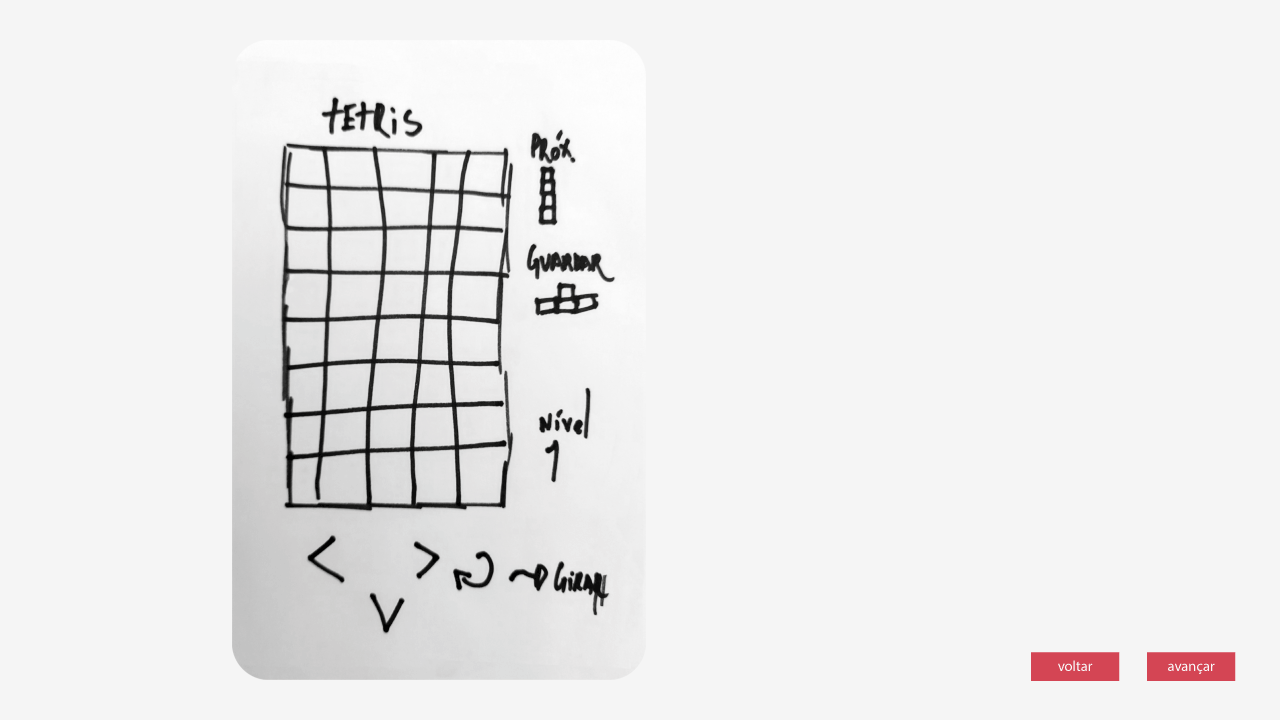 tETRiS
PRóX.
GUARDAR
Nível
1
GiRAR
voltar
avançar